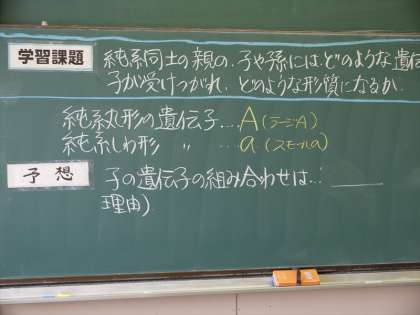 学習課題 純系同士の親の、子や孫には、どのような遺伝
子が受けつがれ、どのような形質になるか
純系丸形の遺伝子…A(ラージA)
純系しわ形 〃 …a(スモールa)
予想 子の遺伝子の組み合わせは…
理由)